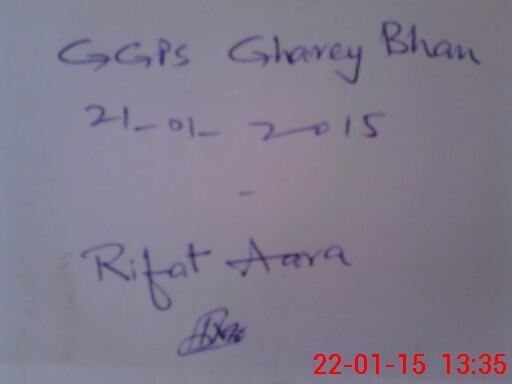 GGPS Gharey Bhan
21-01-2015
-
Rifat Aara
22-01-15 13:35